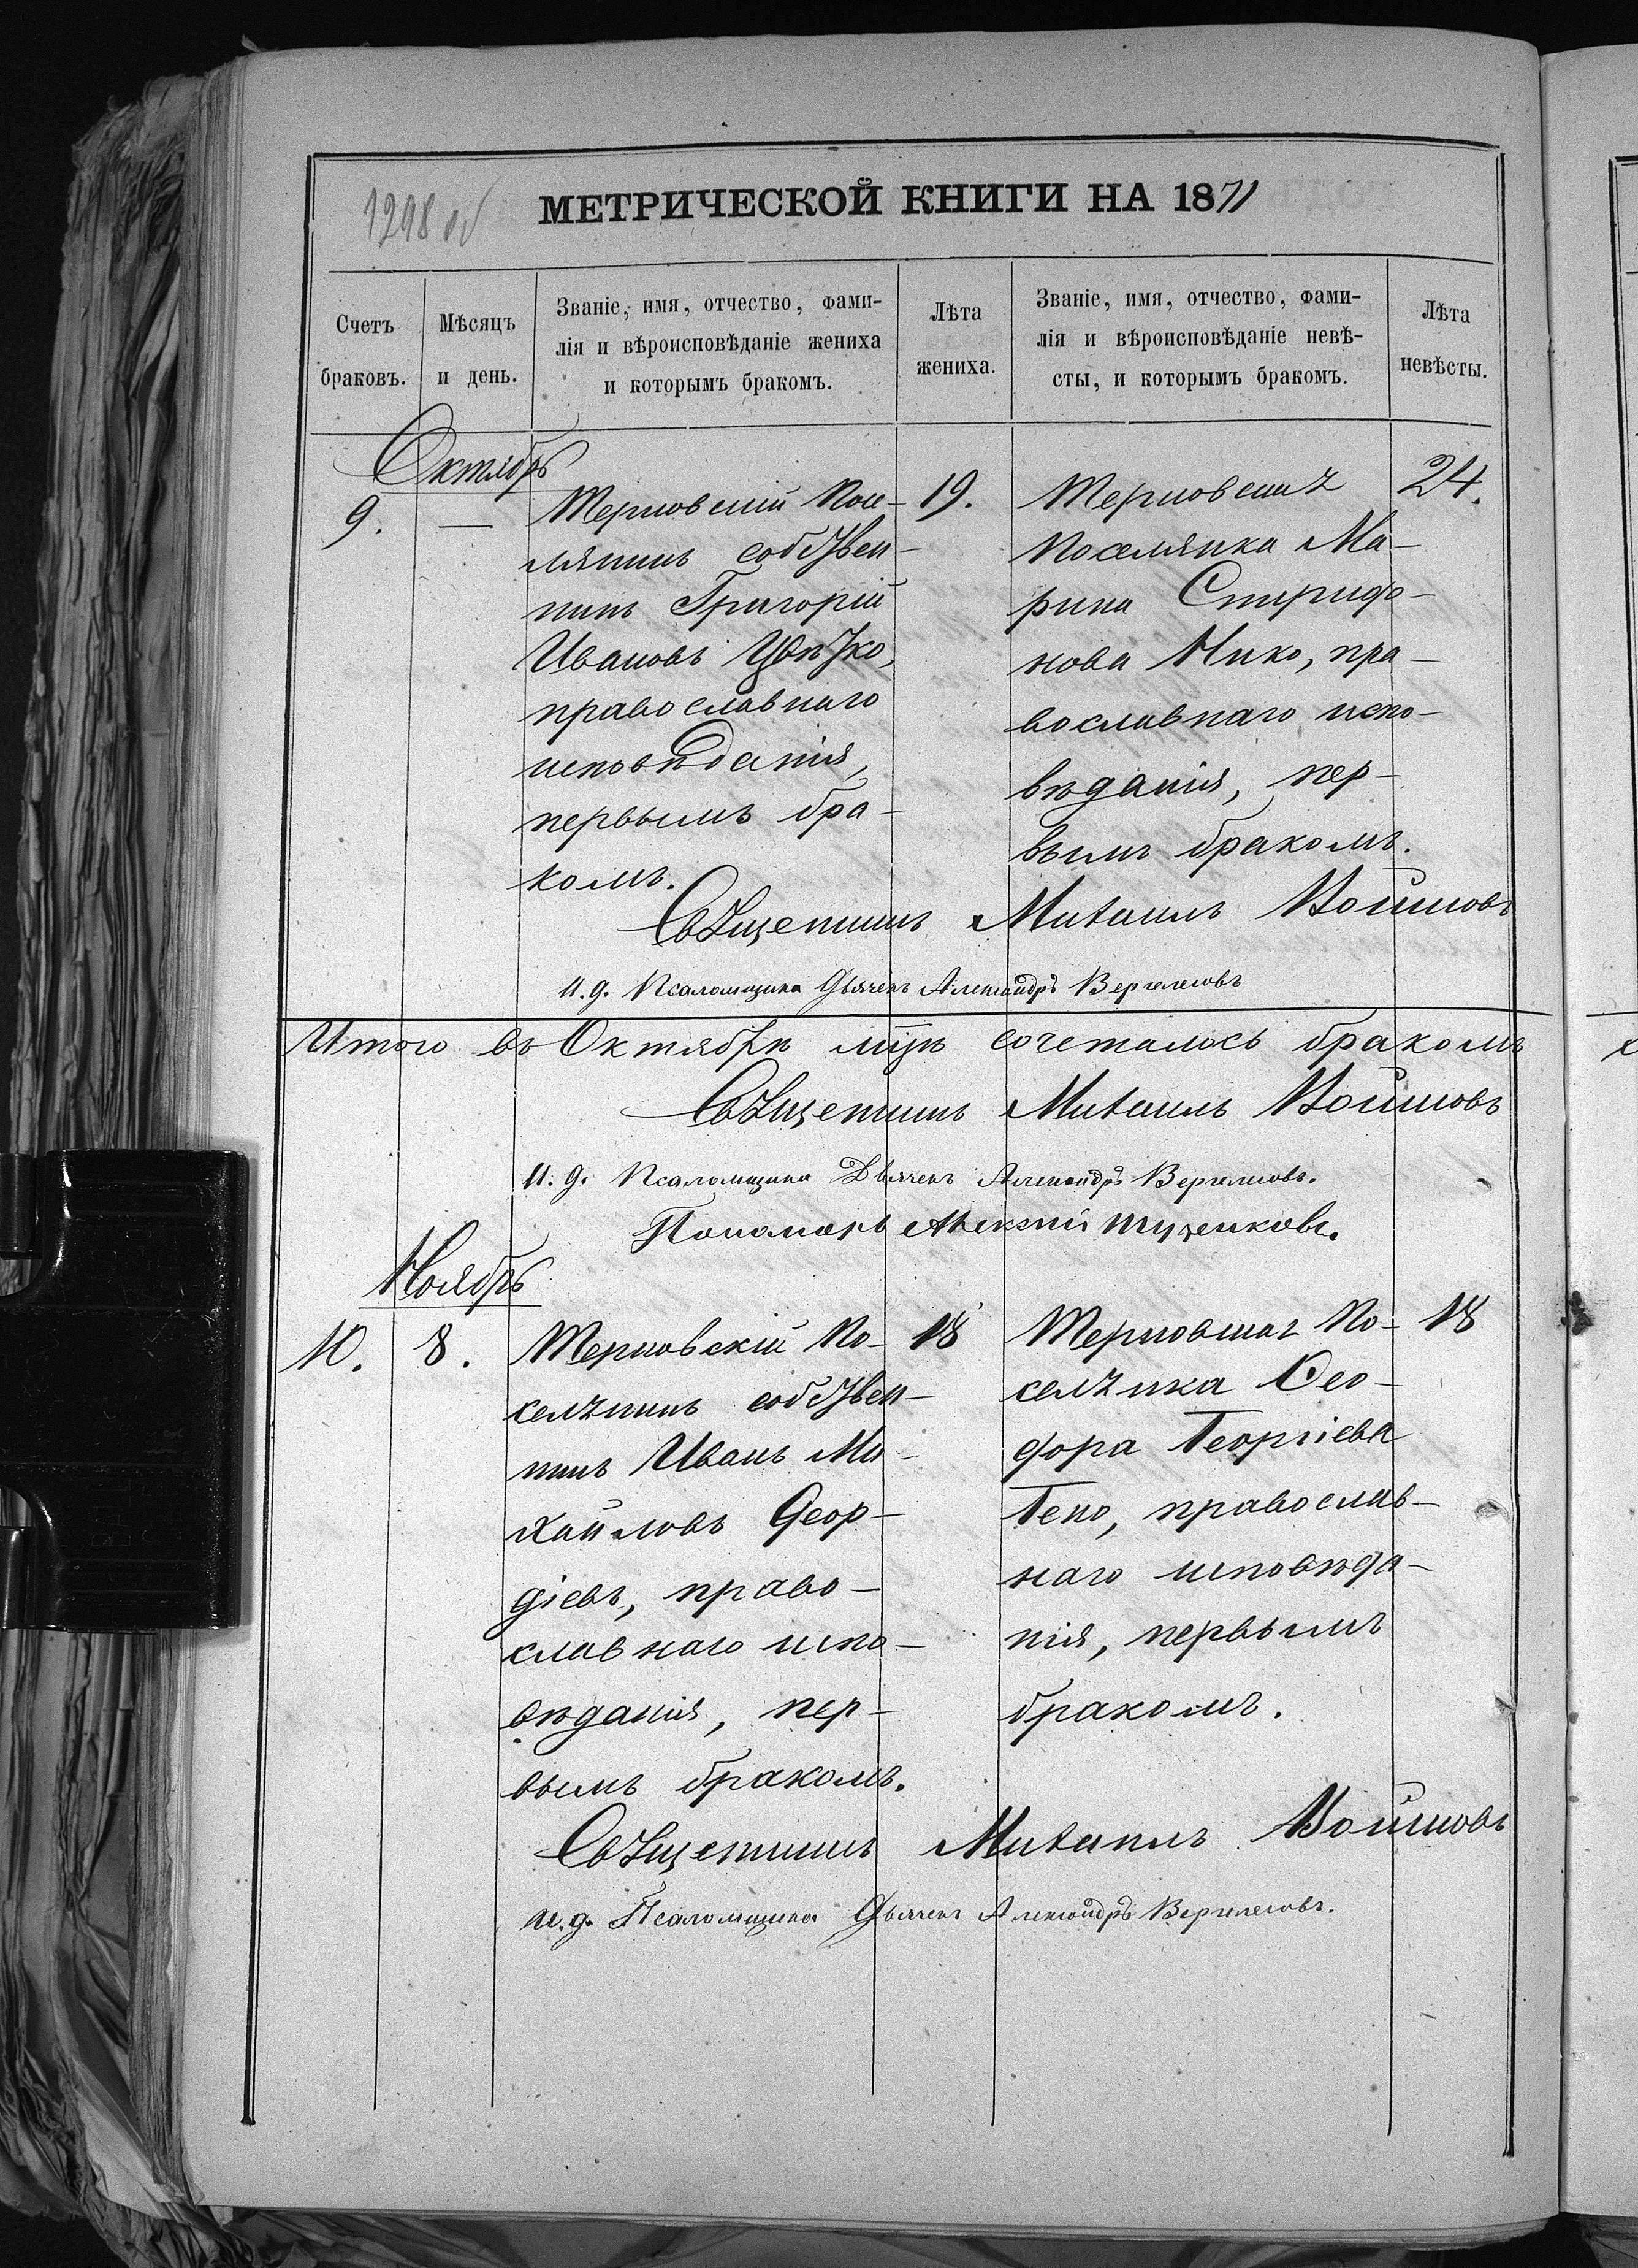 1298 об
МЕТРИЧЕСКОЙ КНИГИ НА 1871
Счетъ браковъ.
Мѣсяцъ и день.
Званіе, имя, отчество, фами-
лія и вѣроисповѣданіе жениха
и которымъ бракомъ.
Лѣта жениха.
Званіе, имя, отчество, фами-
лія и вѣроисповѣданіе невѣ-
сты, и которымъ бракомъ.
Лѣта невѣсты.
Октябрь
9.
—
Терновскій Посе-
лянинъ собствен-
никъ Григорій
Ивановъ Цвѣтко,
православнаго
исповѣданія,
первымъ бра-
комъ.
19.
Терновская
Поселянка Ма-
рина Спиридо-
нова Нико, пра-
вославнаго испо-
вѣданія, пер-
вымъ бракомъ.
24.
Священникъ Михаилъ Войновъ
И. д. Псаломщика Дьячекъ Александръ
Итого въ Октябрѣ мцѣ сочеталось бракомъ
Священникъ Михаилъ Войновъ
И. д. Псаломщика Дьячекъ Александръ
Пономарь Алексѣй
Ноябрь
10.
8.
Терновскій По-
селянинъ собствен-
никъ Иванъ Ми-
хайловъ Деор-
діевъ, право-
славнаго испо-
вѣданія, пер-
вымъ бракомъ.
18
Терновская По-
селянка Ѳео-
дора Георгіева
Гено, православ-
наго исповѣда-
нія, первымъ
бракомъ.
18
Священникъ Михаилъ Войновъ
И. д. Псаломщика Дьячекъ Александръ